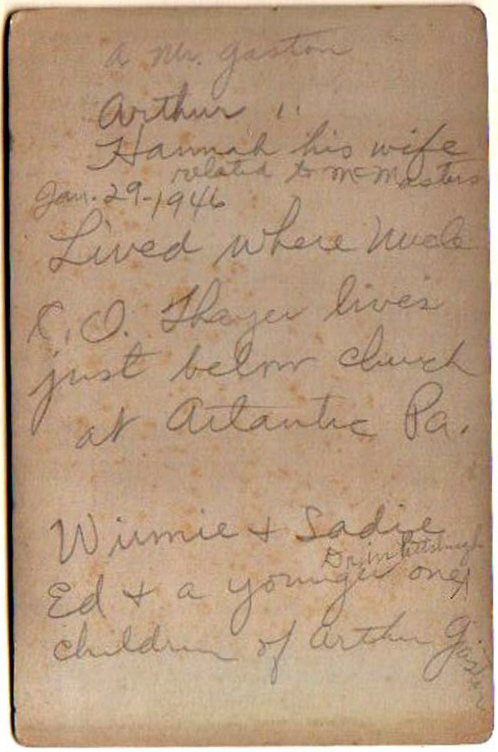 a Mr. Gaston
Arthur "
Hannah his wife
related to McMasters
Jan. 29-1946
Lived where Uncle
O. Thayer lives
just below church
at Atlantic Pa.
Winnie + Sadie
Dr. in Pittsburgh
Ed + a younger one
children of Arthur Gaston